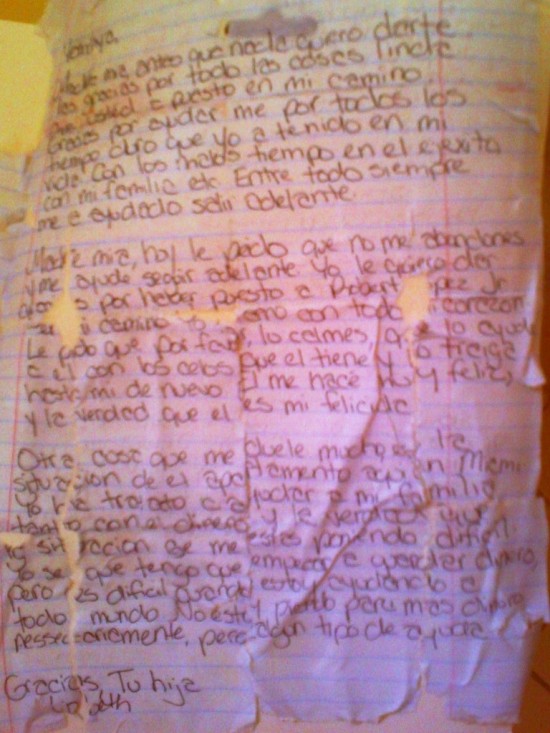 Madre mia, antes que nada quiero darte
las gracias por todo las cosas linda
que usted a puesto en mi camino.
Gracias por ayudar me por todos los
tiempo duro que yo a tenido en mi
vida. Con los malos tiempo en el exito,
con mi familia etc. Entre todo siempre
me a ayudado salir adelante.
Madre mia, hoy le pido que no me abandones
y me ayude seguir adelante. Yo le quiero dar
por haber puesto a Robert Jr
mi camino con todo corazon.
Le pido que por favor, lo calmes, lo ayude
a el con los celos que el tiene y lo traiga
hasta mi de nuevo. El me hace muy feliz,
y la verdad que el es mi felicida
Otra cosa que me duele mucho es la
situacion de el apartamento aqui en Miami
Yo he tratado a ayudar a mi familia,
tanto con el dinero y la verdad que
la situacion se me estas poniendo dificil.
Yo se que tengo que empezar a guardar dinero,
pero es dificil cuando estoy ayudando a
todo mundo. No estoy pidiendo para mas dinero
nessecariemente, pero algun tipo de ayuda.
Gracias, Tu hija